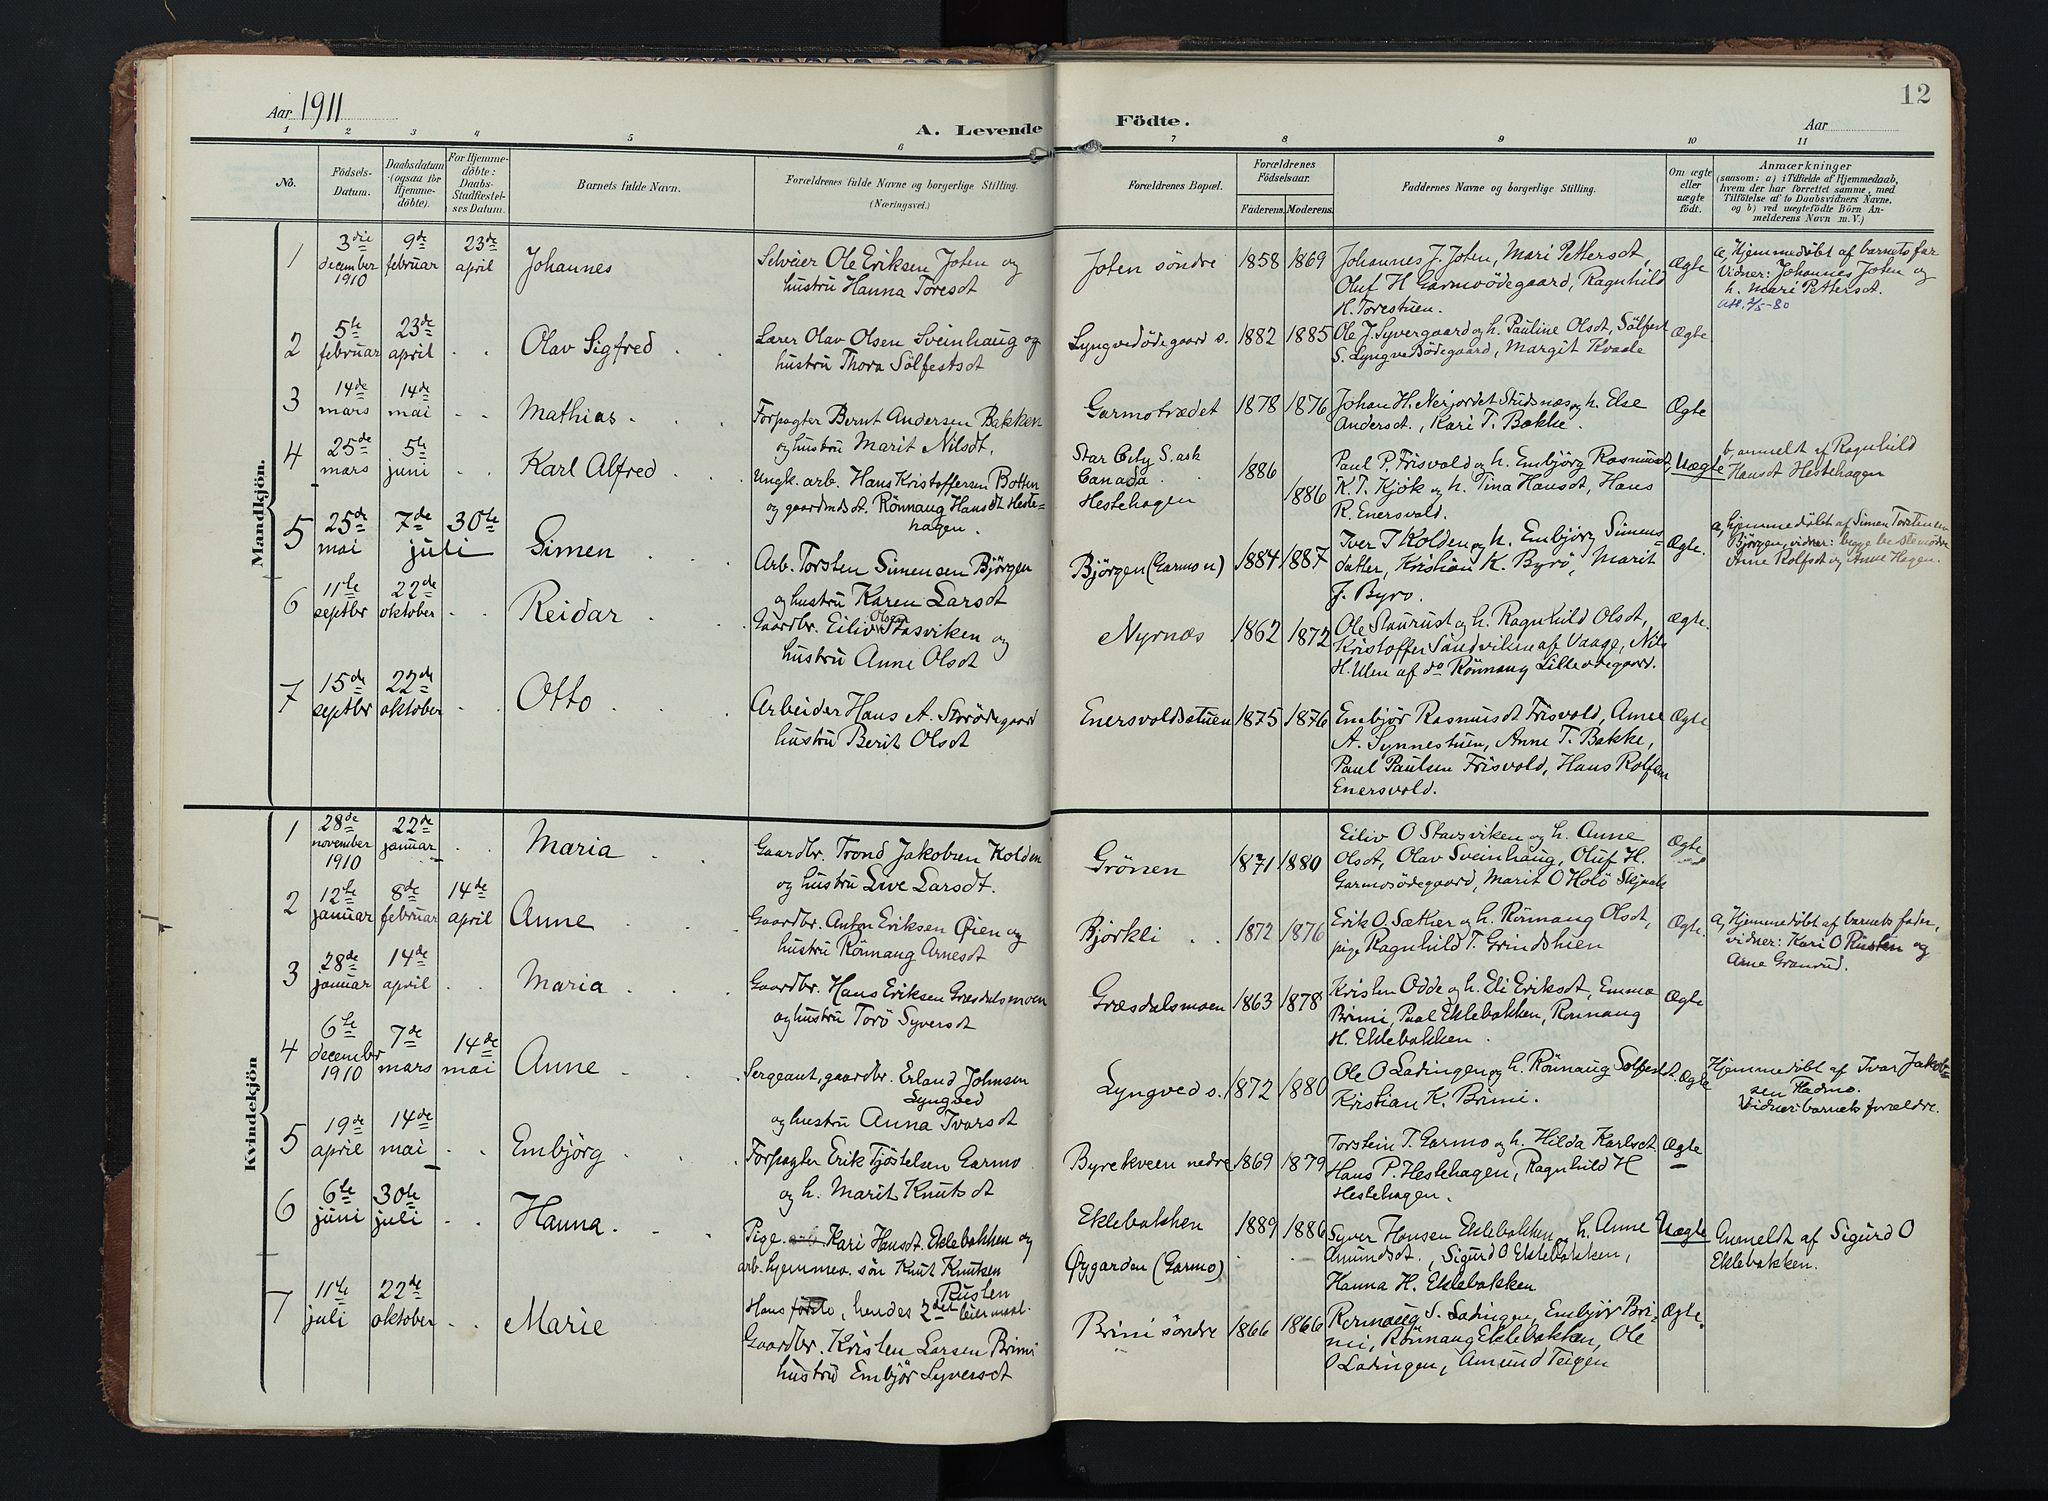 Aar 1911
A. Levende Födte.
Aar
12
1 2 3 4 5 6 7 8 8 9 10 11
No.
Födsels-
Datum.
Daabsdatum
(ogsaa for
Hjemme-
döbte).
For Hjemme-
döbte:
Daabs-
Stadfæstel-
ses Datum.
Barnets fulde Navn.
Forældrenes fulde Navne og borgerlige Stilling.
(Næringsvei.)
Forældrenes Bopæl.
Forældrenes
Födselsaar.
Faderens. Moderens.
Faddernes Navne og borgerlige Stilling.
Om ægte
eller
uægte
födt.
Anmærkninger
(saasom: a) i Tilfælde af Hjemmedaab,
hvem der har forrettet samme, med
Tilföielse af to Daabsvidners Navne,
og b) ved uægtefödte Börn An-
melderens Navn m. V.)
Mandkjön.
1
3die
december
1910
9de
februar
23de
april
Johannes
Selveier Ole Eriksen Joten og
hustru Hanna Toresdt
Joten söndre
1858 1869
Johannes J. Joten, Mari Pettersdt,
Oluf H Garmoödegaard, Ragnhild
H. Torestuen.
Ægte
a, Hjemmedøbt af barnets far
Vidner: Johannes Joten og
h. Mari Pettersdt.
2
5te
februar
23de
april
Olav Sigfred
Lærer Olav Olsen Sveinhaug og
hustru Thora Sölfestsdt
Lyngvedødegaard s.
1882 1885
Ole J. Syvergaard og h. Pauline Olsdt, Sölfest
S. Lyngvedödegaard, Margit Kvaale
Ægte
3
14de
mars
14de
mai
Mathias
Forpagter Bernt Andersen Bakken
og hustru Marit Nilsdt.
Garmotrædet
1878 1876
Johan H. Nerjordet Studsnæs og h. Else
Andersdt., Kari T. Bakke.
Ægte
4
25de
mars
5te
juni
Karl Alfred
Ungk. arb. Hans Kristoffersen Botten
og gaardmdst. Rönnaug Hansdt Heste-
hagen.
Star City Sask
Canada
Hestehagen
1886
1886
Paul P. Frisvold og h. Embjörg Rasmusdt,
K. T. Kjök og h. Tina Hansdt, Hans
R. Enersvold.
Uægte
b, anmelt af Ragnhild
Hansdt Hestehagen
5
25de
mai
7de
juli
30te
Simen
Arb. Torsten Simensen Björgen
og hustru Karen Larsdt
Björgen (Garmon)
1884 1887
Iver T Kolden og h. Embjörg Simens-
datter, Kristian K. Byrö, Marit
J. Byro.
Ægte.
a, hjemmedöbt af Simen Torstensen
Björgen, vidner: begge bestemödre
Anne Rolfsdt og Anne Hagen.
6
11te
septbr
22de
oktober
Reidar
Gaardbr. Eiliv Olsen Stavsviken og
hustru Anne Olsdt
Nyrnæs
1862 1872
Ole Staurust og h. Ragnhild Olsdt,
Kristoffer Sandviken af Vaage, Nils
H. Ulen af do Rönnaug Lilleödegaard.
Ægte.
7
15de
septbr
22de
oktober
Otto
Arbeider Hans A. Storödegaard
hustru Berit Olsdt
Enersvoldstuen
1875 1876
Embjör Rasmusdt Frisvold, Anne
A. Synnestuen, Anne T. Bakke,
Paul Paulsen Frisvold, Hans Rolfsen
Enersvold.
Ægte
Kvindekjön
1
28de
november
1910
22de
januar
Maria
Gaardbr. Trond Jakobsen Kolden
og hustru Live Larsdt.
Grönen
1871 1880
Eiliv O Stavsviken og h. Anne
Olsdt, Olav Sveinhaug, Oluf H.
Garmosödegaard, Marit O Holö Skjaak
Ægte
2
12te
januar
8de
februar
14de
april
Anne
Gaardbr. Anton Eriksen Öien og
hustru Rönnaug Arnesdt
Bjørkli
1872 1876
Erik O Sæther og h. Rönnaug Olsdt,
pige Ragnhild T. Grindstuen
Ægte.
a, Hjemmedøbt af barnets fader,
vidner: Kari O Rusten og
Arne Granrud.
3
28de
januar
14de
april
Maria
Gaardbr. Hans Eriksen Græsdalsmoen
og hustru Torö Syversdt
Græsdalsmoen
1863 1878
Kristen Odde og h. Eli Eriksdt, Emma
Brimi, Paul Eklebakken, Rönnaug
H. Eklebakken.
Ægte
4
6te
december
1910
7de
mars
14de
mai
Anne
Sergeant, gaardbr. Erland Johnsen
Lyngved
og hustru Anna Ivarsdt
Lyngved s.
1872 1880
Ole O Ladingen og h. Rönnaug Solfestdt.
Kristian K. Brimi.
Ægte
Hjemmedøbt af Ivar Jakob-
sen Hadmo.
Vidner: barnets forældre.
5
19de
april
14de
mai
Embjörg
Forpagter Erik Tjöstelsen Garmo
og h. Marit Knutsdt
Byrekveen nedre
1869 1879
Torstein T. Garmo og h. Hilda Karlsdt.
Hans P. Hestehagen, Ragnhild H
Hestehagen.
Ægte
6
6te
juni
30te
juli
Hanna
Pige Kari Hansdt. Eklebakken og
arb. hjemmev. sön Knut Knutsen
Rusten
Hans förste, hendes 2det leiermaal.
Eklebakken
Øygarden (Garmo)
1889 1886
Syver Hansen Eklebakken og h. Anne
Amundsdt., Sigurd O Eklebakken,
Hanna H. Eklebakken
Uægte
Anmelt af Sigurd O
Eklebakken.
7
11te
juli
22de
oktober
Marie
Gaardbr. Kristen Larsen Brimi
hustru Embjör Syversdt
Brimi söndre
1866 1866
Rönnaug S. Ladingen, Embjör Bri-
mi, Rönnaug Eklebakken, Ole
O Ladingen, Amund Teigen
Ægte.